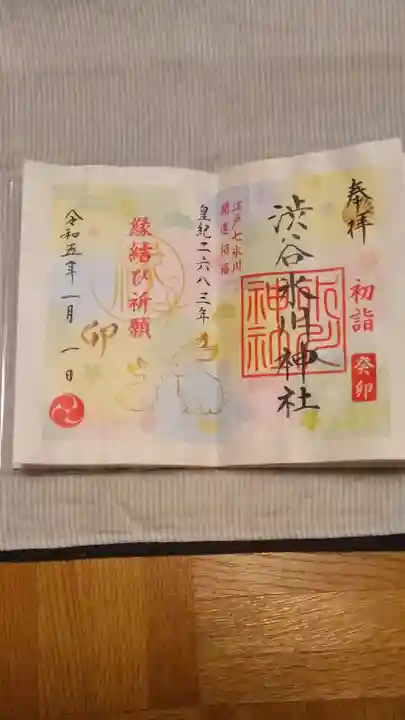 奉拝
初詣
癸卯
渋谷氷川神社
氷川神社
江戸七氷川
開運招福
皇紀二六八三年
縁結び祈願
卯
令和五年一月一日